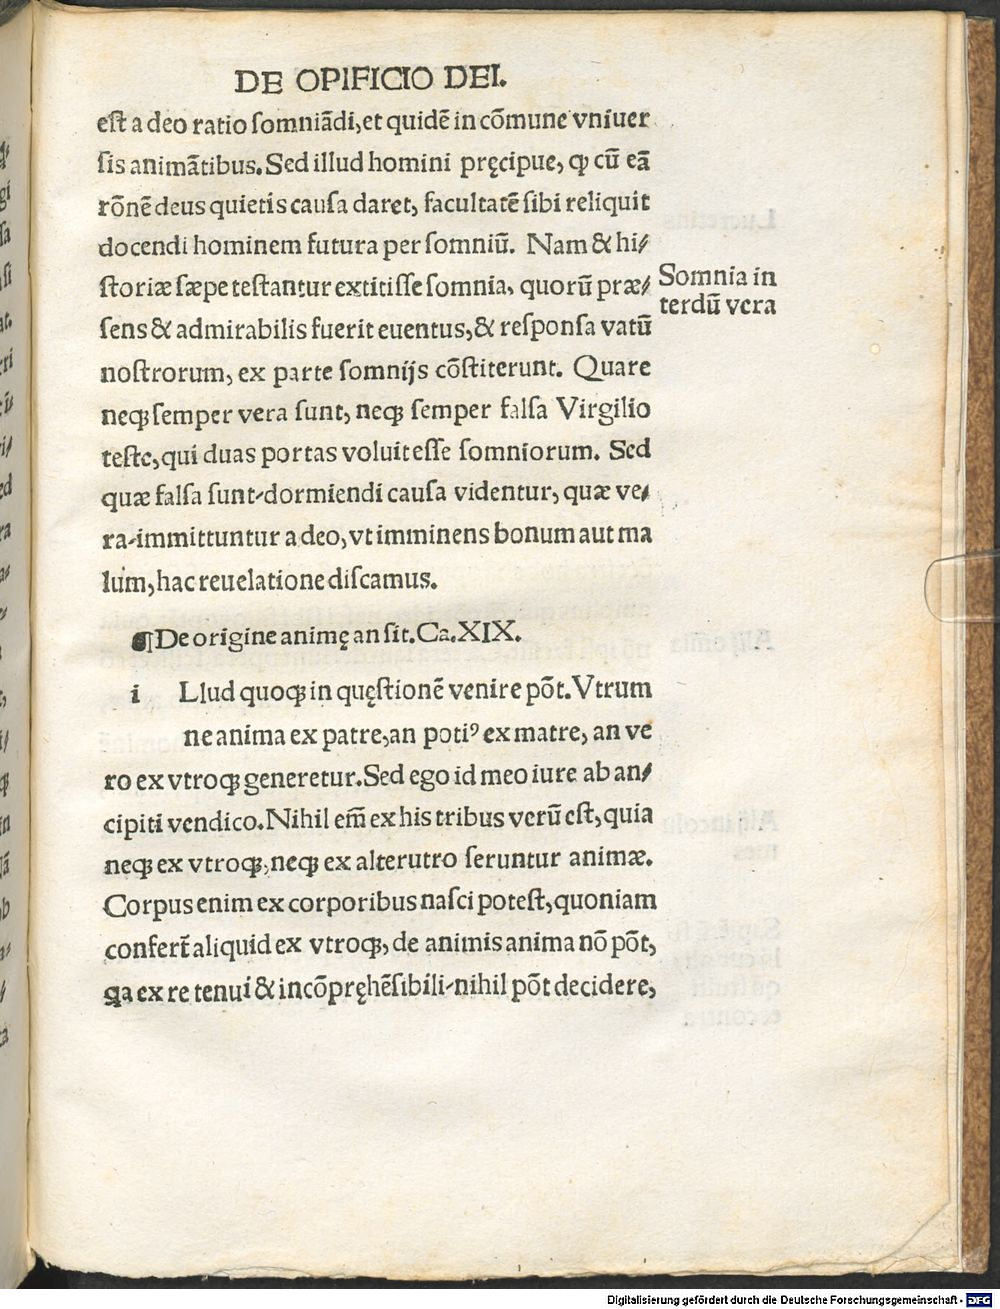 DE OPIFICIO DEI.
eſt a deo ratio ſomniãdi, et quidẽ in cõmune vniuer
ſis animãtibus. Sed illud homini pręcipue, ꝙ cũ eã
rõnẽ deus quietis cauſa daret, facultatẽ ſibi reliquit
docendi hominem futura per ſomniũ. Nam & hi⸗
ſtoriæ ſæpe teſtantur extitiſſe ſomnia, quorũ præ⸗
ſens & admirabilis fuerit euentus, & reſponſa vatũ
noſtrorum, ex parte ſomnijs cõſtiterunt. Quare
neqꝫ ſemper vera ſunt, neqꝫ ſemper falſa Virgilio
teſte, qui duas portas voluit eſſe ſomniorum. Sed
quæ falſa ſunt⸗dormiendi cauſa videntur, quæ ve⸗
ra⸗immittuntur a deo, vt imminens bonum aut ma
lum, hac reuelatione diſcamus.
Somnia in
terdũ vera
¶De origine animę an ſit. Ca. XIX.
i Llud quoqꝫ in quęſtionẽ venire põt. Vtrum
ne anima ex patre, an potiꝰ ex matre, an ve
ro ex vtroqꝫ generetur. Sed ego id meo iure ab an⸗
cipiti vendico. Nihil em̃ ex his tribus verũ eſt, quia
neqꝫ ex vtroqꝫ, neqꝫ ex alterutro ſeruntur animæ.
Corpus enim ex corporibus naſci poteſt, quoniam
confert̃ aliquid ex vtroqꝫ, de animis anima nõ põt,
qa ex re tenui & incõpręhẽſibili⸗nihil põt decidere,
Digitalisierung gefördert durch die Deutsche Forschungsgemeinschaft - DFG